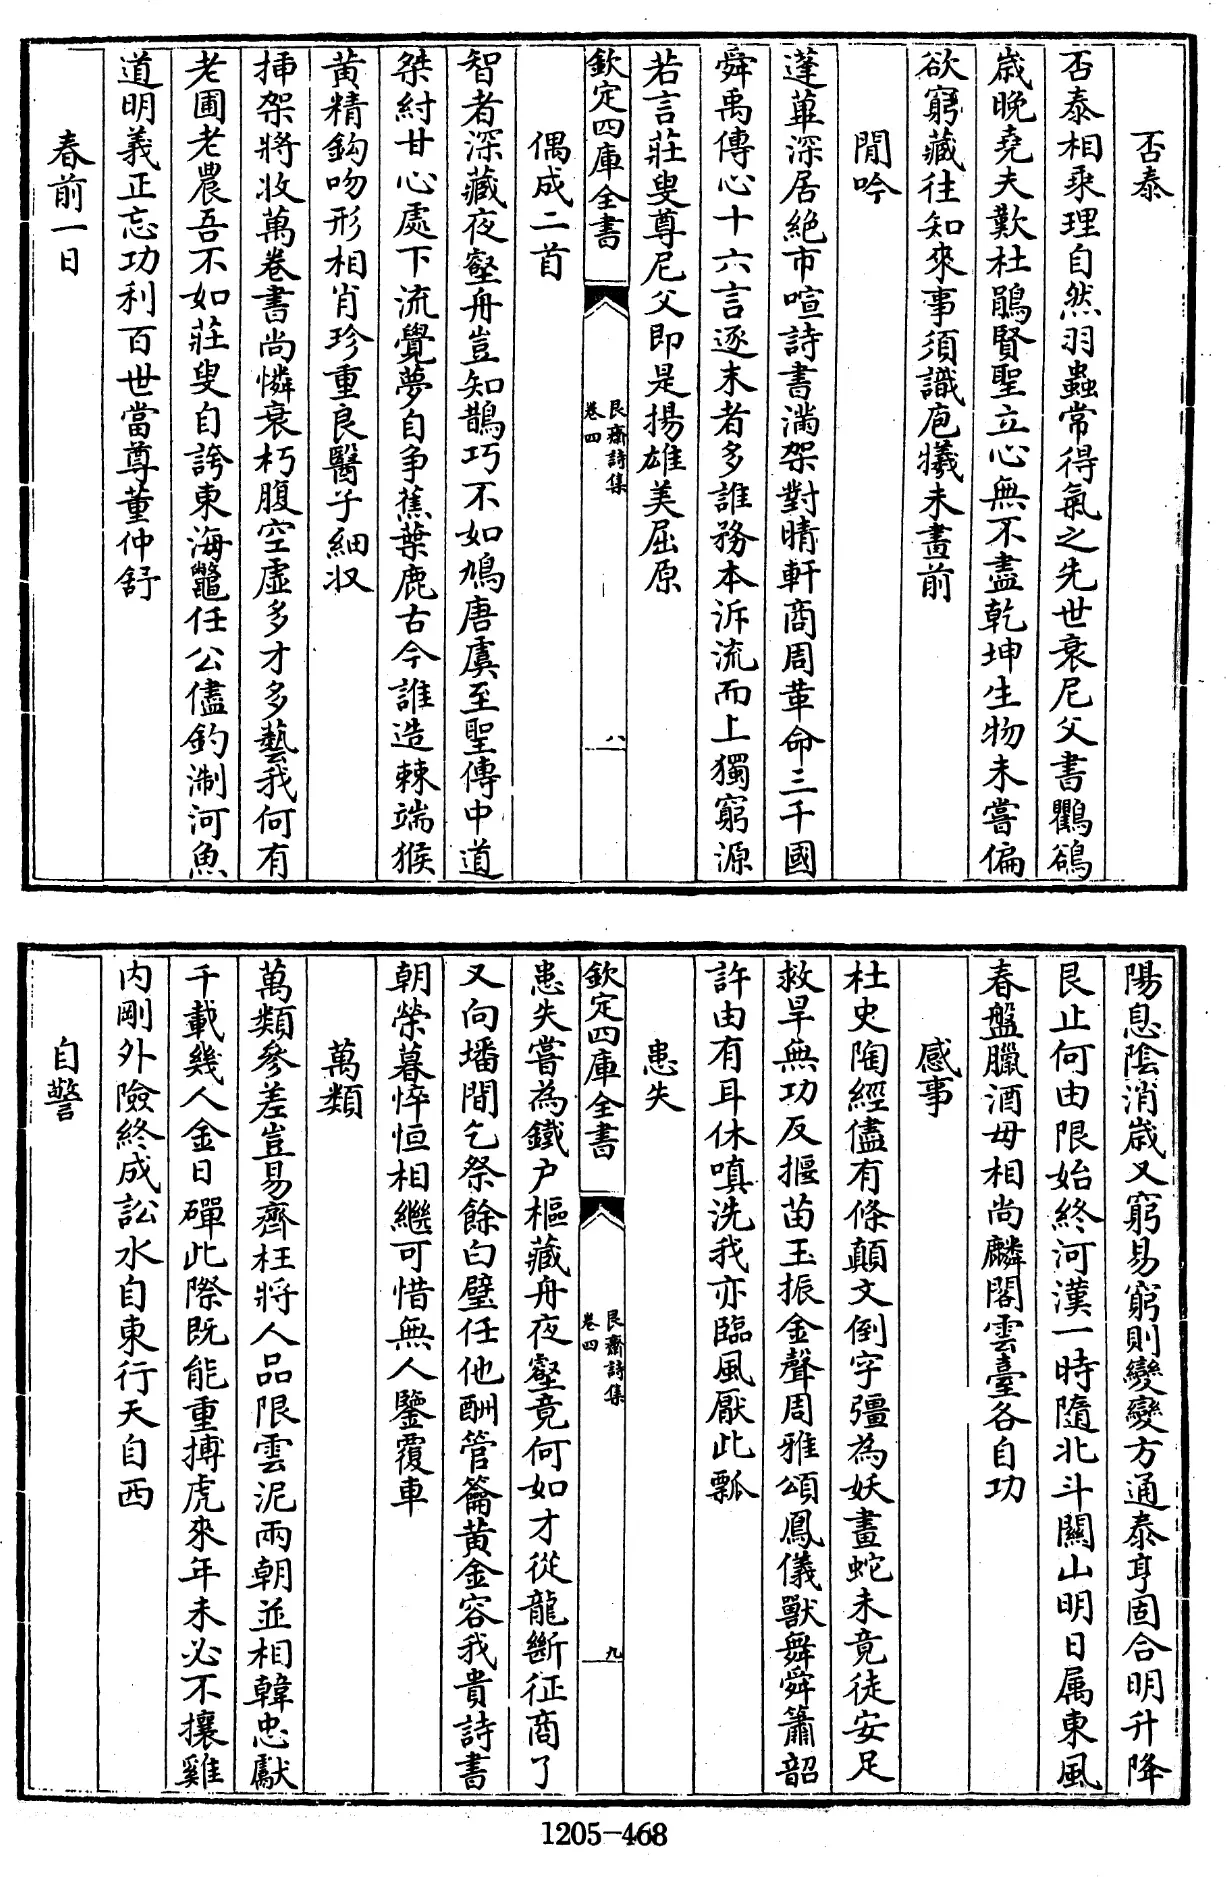 否泰
否泰相乘理自然羽蟲常得氣之先世衰尼父書鸜鵒
歳晩堯夫歎杜鵑賢聖立心無不盡乾坤生物未嘗偏
欲窮藏往知來事須識庖犧未畫前
閒吟
蓬蓽深居絶市喧詩書滿架對晴軒商周革命三千國
舜禹傳心十六言逐末者多誰務本泝流而上獨窮源
若言莊叟尊尼父即是揚雄美屈原
欽定四庫全書
艮齋詩集
卷四
八
偶成二首
智者深藏夜壑舟豈知鵲巧不如鳩唐虞至聖傳中道
桀紂甘心處下流覺夢自争蕉葉鹿古今誰造棘端猴
黄精鈎吻形相肖珍重良醫子細収
揷架將收萬卷書尚憐衰朽腹空虛多才多藝我何有
老圃老農吾不如莊叟自誇東海鼈任公儘釣淛河魚
道明義正忘功利百世當尊董仲舒
春前一日
陽息陰消歳又窮易窮則變變方通泰亨固合明升降
艮止何由限始終河漢一時隨北斗關山明日属東風
春盤臘酒毋相尚麟閣雲臺各自功
感事
杜史陶經儘有條顛文倒字彊為妖畫蛇未竟徒安足
救旱無功反揠苗玉振金聲周雅頌鳳儀獸舞舜簫韶
許由有耳休嗔洗我亦臨風厭此瓢
患失
欽定四庫全書
艮齋詩集
卷四
九
患失嘗為鐵户樞藏舟夜壑竟何如才從龍斷征商了
又向墦間乞祭餘白璧任他酬管籥黄金容我貴詩書
朝榮暮悴恒相繼可惜無人鑒覆車
萬類
萬類參差豈易齊枉將人品限雲泥兩朝並相韓忠獻
千載幾人金日磾此際既能重搏虎來年未必不攘雞
内剛外險終成訟水自東行天自西
自警
1205-468